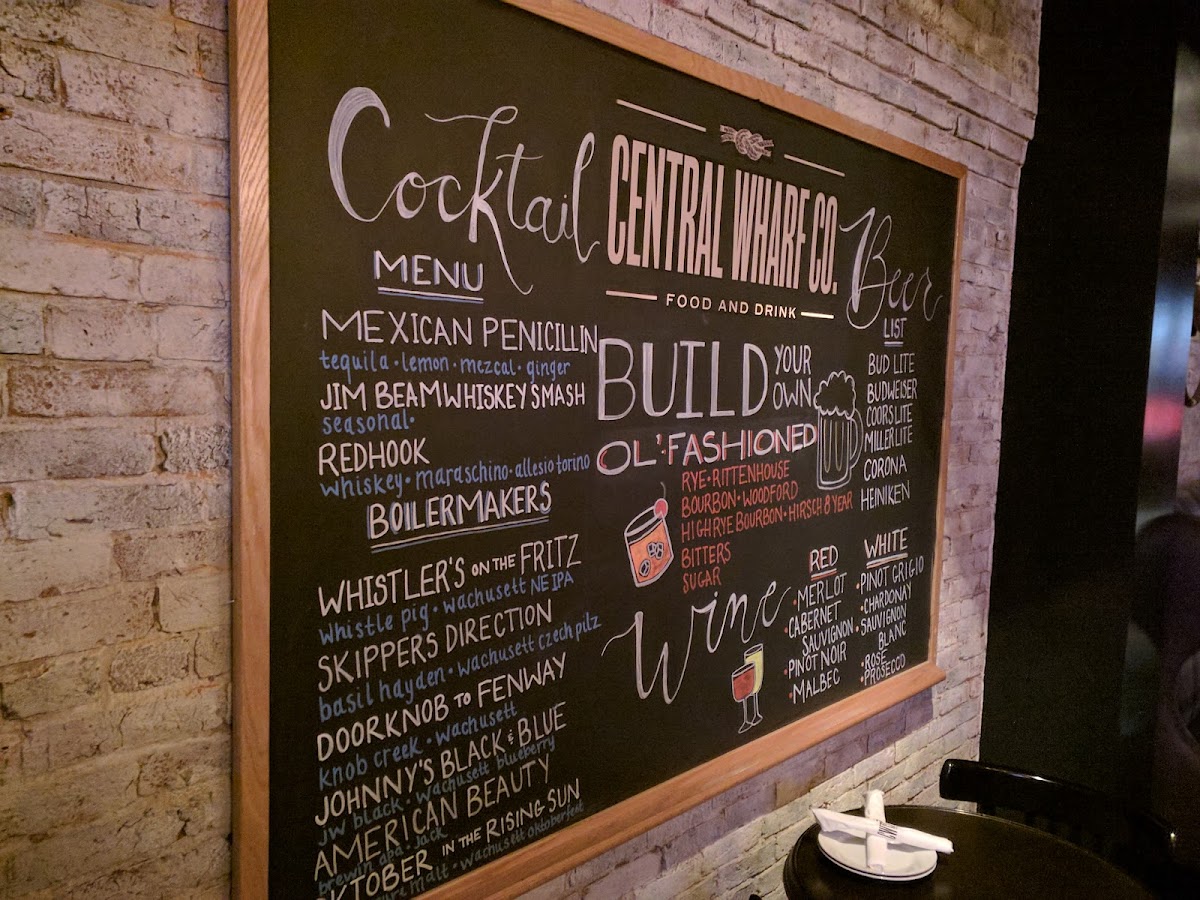 Cocktail
MENU
MEXICAN PENICILLIN
tequila · lemon · mezcal · ginger
JIM BEAM WHISKEY SMASH
seasonal·
REDHOOK
whiskey · maraschino · allesio torino
BOILERMAKERS
WHISTLER'S ON THE FRITZ
whistle pig · wachusett NE IPA
SKIPPERS DIRECTION
basil hayden · wachusett czech pilz
DOORKNOB TO FENWAY
knob creek · wachusett
JOHNNY'S BLACK & BLUE
jw black · wachusett blueberry
AMERICAN BEAUTY
brewin apa · jack
OKTOBER IN THE RISING SUN
malt · wachusett oktoberfest
CENTRAL WHARF CO.
FOOD AND DRINK
BUILD YOUR OWN
OL' FASHIONED
RYE · RITTENHOUSE
BOURBON · WOODFORD
HIGH RYE BOURBON · HIRSCH 8 YEAR
BITTERS
SUGAR
Beer
LIST
BUD LITE
BUDWEISER
COORS LITE
MILLER LITE
CORONA
HEINIKEN
Wine
RED
·MERLOT
·CABERNET
SAUVIGNON
·PINOT NOIR
·MALBEC
WHITE
·PINOT GRIGIO
·CHARDONAY
·SAUVIGNON
BLANC
·ROSE
·PROSECCO